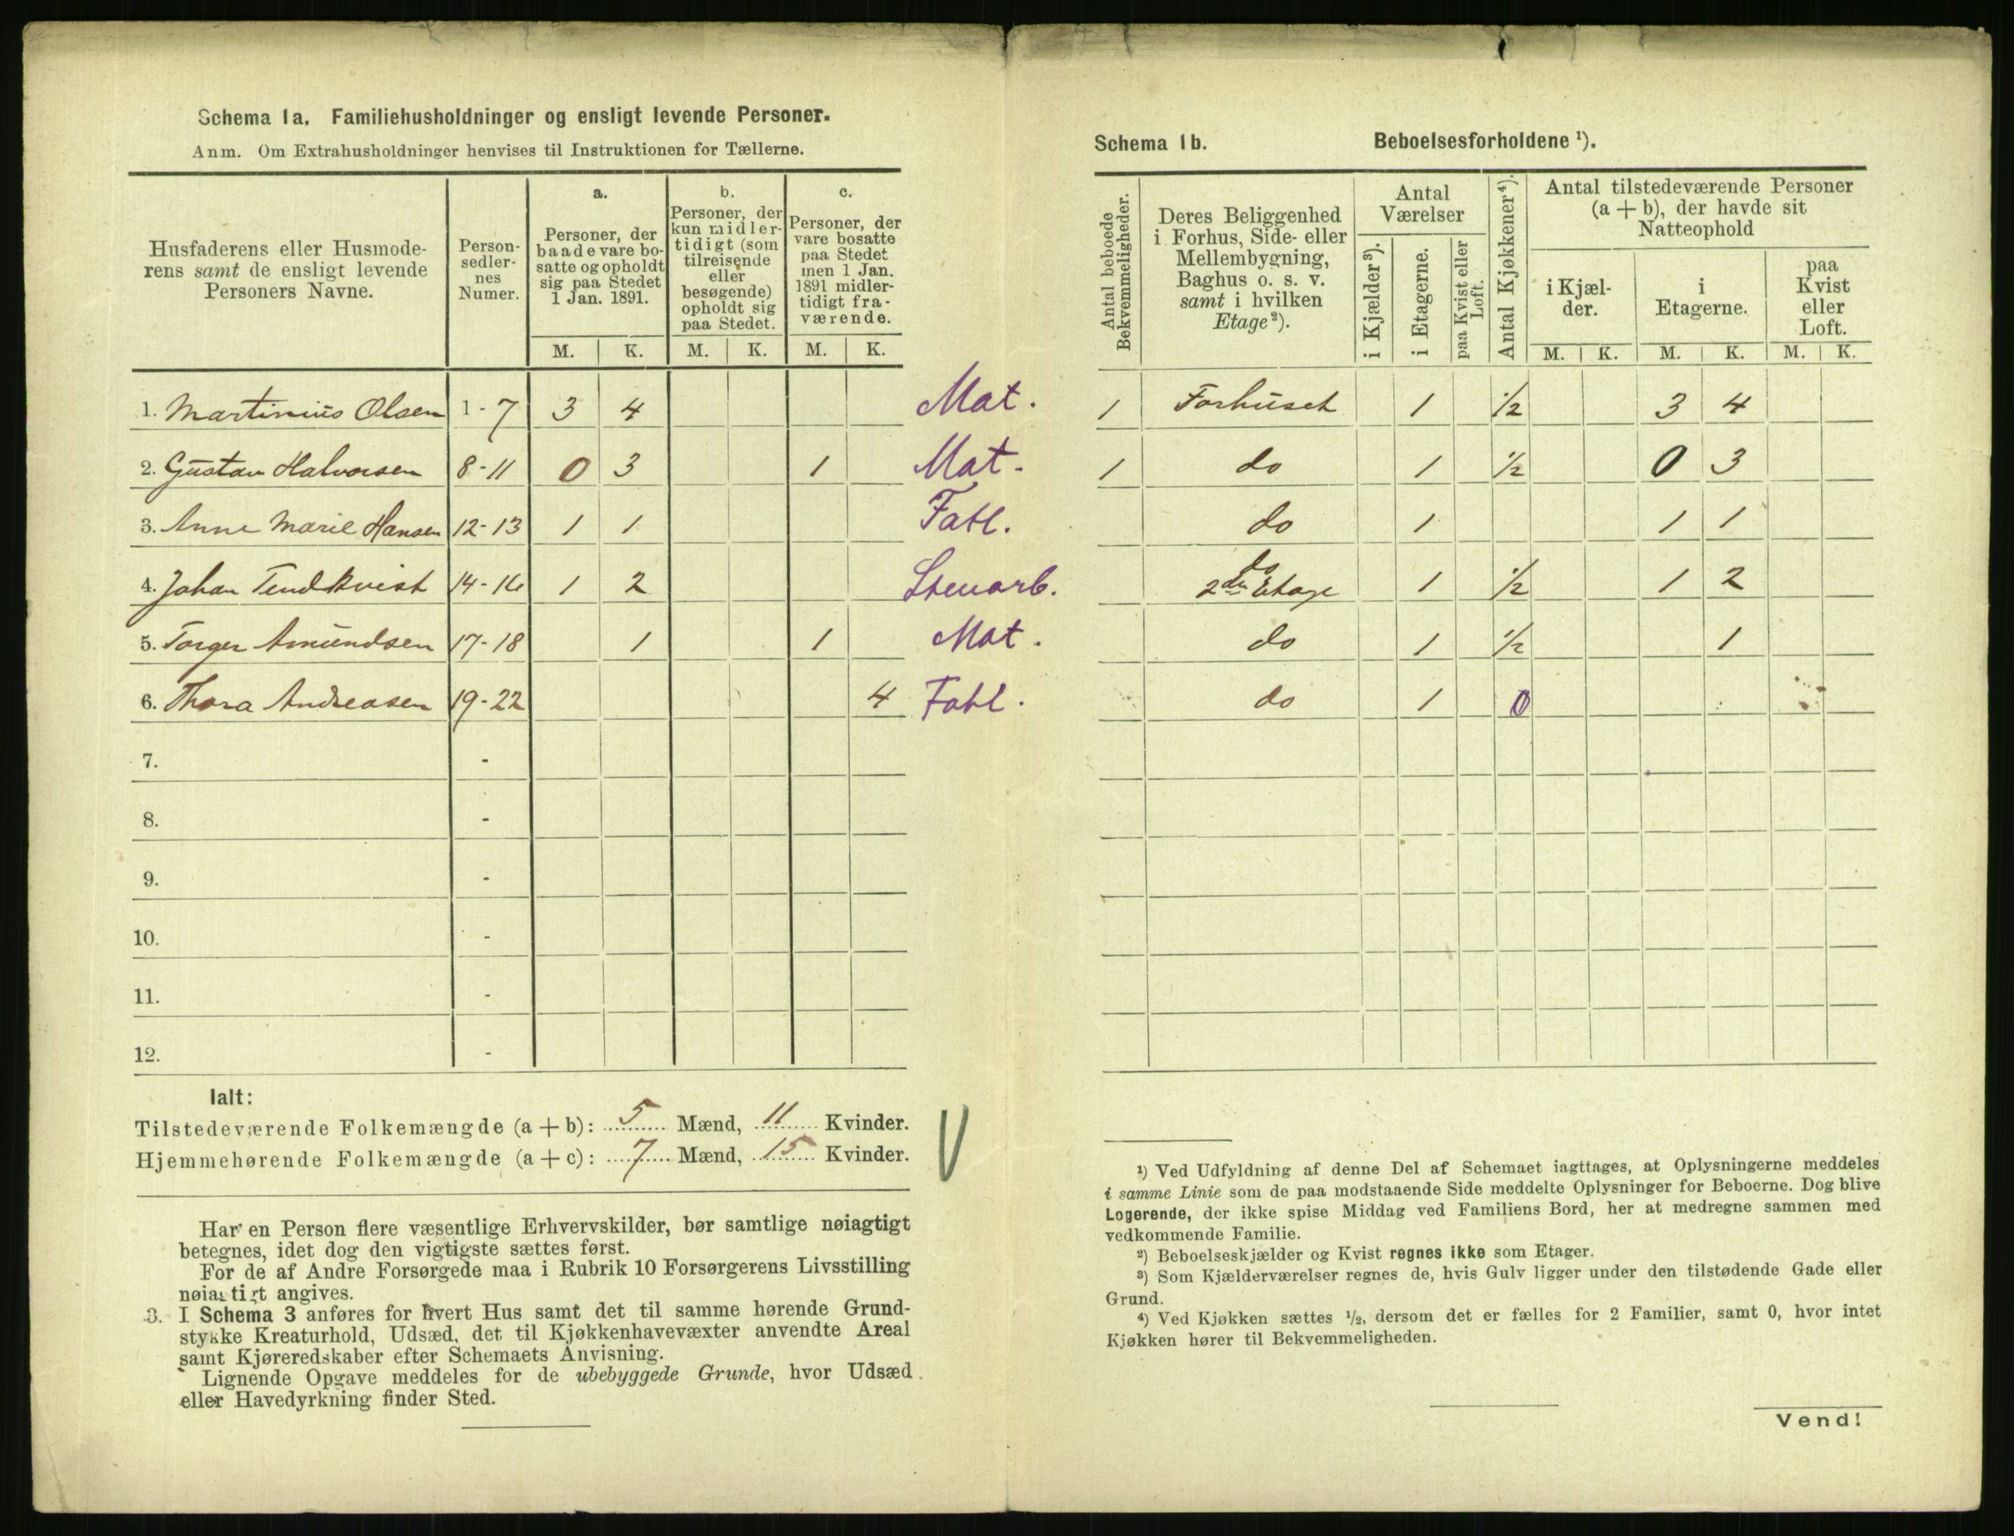 Schema 1a. Familiehusholdninger og ensligt levende Personer.
Anm. Om Extrahusholdninger henvises til Instruktionen for Tællerne.
Husfaderens eller Husmode-
rens samt de ensligt levende
Personers Navne.
Person-
sedler-
nes
Numer.
a.
Personer, der
baade vare bo-
satte og opholdt
sig paa Stedet
1 Jan. 1891.
b.
Personer, der
kun midler-
tidigt (som
tilreisende
eller
besøgende)
opholdt sig
paa Stedet.
c.
Personer, der
vare bosatte
paa Stedet
men 1 Jan.
1891 midler-
tidigt fra-
værende.
M. K. M. K. M. K.
1. Martinius Olsen 1 - 7 3 4 Mat.
2. Gustav Halvorsen 8 - 11 0 3 1 Mat.
3. Anne Marie Hansen 12 - 13 1 1 Fatl.
4. Johan Tendkvist 14 - 16 1 2 Stenarb.
5. Torger Amundsen 17 - 18 1 1 Mat.
6. Thora Andreasen 19 - 22 4 Fatl.
7. -
8. -
9. -
10. -
11. -
12. -
Ialt:
Tilstedeværende Folkemængde (a + b): 5 Mænd, 11 Kvinder.
Hjemmehørende Folkemængde (a + c): 7 Mænd, 15 Kvinder.
Har en Person flere væsentlige Erhvervskilder, bør samtlige nøiagtigt
betegnes, idet dog den vigtigste sættes først.
For de af Andre Forsørgede maa i Rubrik 10 Forsørgerens Livsstilling
nøiagtigt angives.
3. I Schema 3 anføres for hvert Hus samt det til samme hørende Grund-
stykke Kreaturhold, Udsæd, det til Kjøkkenhavevæxter anvendte Areal
samt Kjøreredskaber efter Schemaets Anvisning.
Lignende Opgave meddeles for de ubebyggede Grunde, hvor Udsæd
eller Havedyrkning finder Sted.
Schema 1b. Beboelsesforholdene ¹).
Antal beboede
Bekvemmeligheder.
Deres Beliggenhed
i Forhus, Side- eller
Mellembygning,
Baghus o. s. v.
samt i hvilken
Etage²).
Antal
Værelser
i Kjælder³).
i Etagerne.
paa Kvist eller
Loft.
Antal Kjøkkener⁴).
Antal tilstedeværende Personer
(a + b), der havde sit
Natteophold
i Kjæl-
der.
i
Etagerne.
paa
Kvist
eller
Loft.
M. K. M. K. M. K.
1 Forhuset 1 ½ 3 4
1 do 1 ½ 0 3
do 1 1 1
do
2den Etage 1 ½ 1 2
do 1 ½ 1
do 1 0
¹) Ved Udfyldning af denne Del af Schemaet iagttages, at Oplysningerne meddeles
i samme Linie som de paa modstaaende Side meddelte Oplysninger for Beboerne. Dog blive
Logerende, der ikke spise Middag ved Familiens Bord, her at medregne sammen med
vedkommende Familie.
²) Beboelseskjælder og Kvist regnes ikke som Etager.
³) Som Kjælderværelser regnes de, hvis Gulv ligger under den tilstødende Gade eller
Grund.
⁴) Ved Kjøkken sættes ½, dersom det er fælles for 2 Familier, samt 0, hvor intet
Kjøkken hører til Bekvemmeligheden.
Vend!